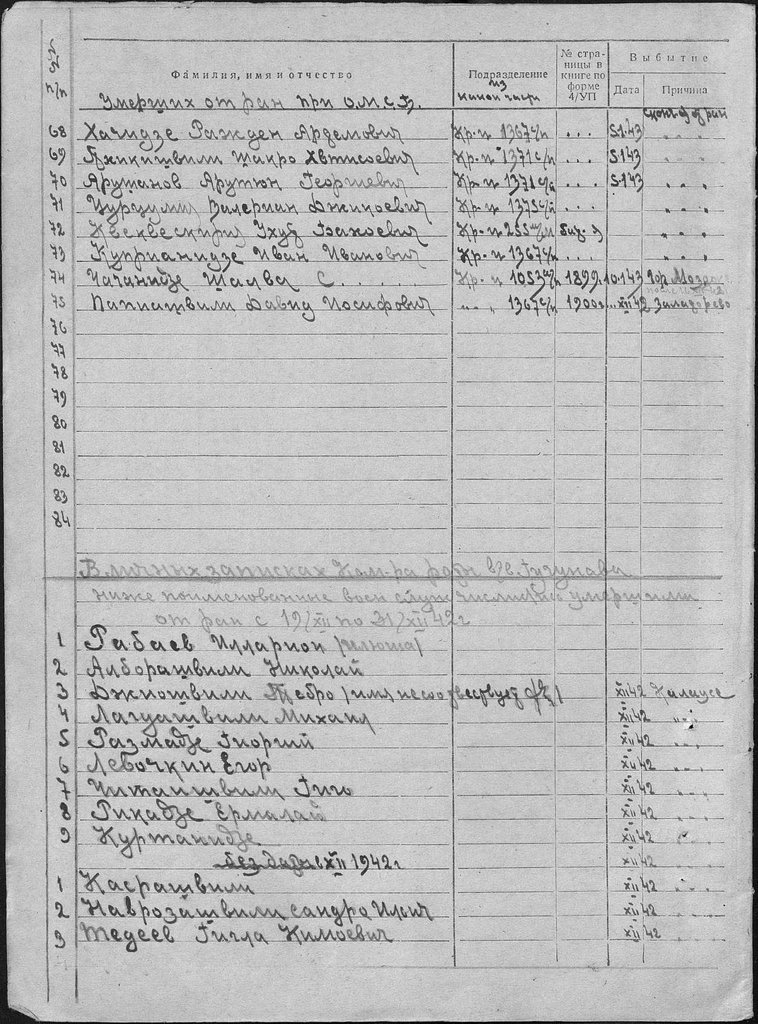 № п/п
Фамилия, имя и отчество
Подразделение
№ страницы в книге по форме 4/УП
Выбытие
Дата
Причина
Умерших от ран при О.М.С.Б.
из какой части
68 Хачидзе Ражден Ардемович Кр-ц 1367 с/п ... 5.1.43
69 Шакро Кр-ц 1371 с/п ... 5.1.43 " " "
70 Арушанов Арутюн Георгиевич Кр-ц 1371 с/п ... 5.1.43 " " "
71 Валериан Джикоевич Кр-ц 1375 с/п ... " " "
72 Кр-ц 255 " " "
73 Куприанидзе Иван Иванович Кр-ц 1367 с/п ... " " "
74 Чачанидзе Шалва С..... Кр-ц 1053 с/п 1899. 10.1.43 гор. Моздок
75 Папиашвили Давид Иосифович " " " 1367 с/п 1900 XII 42
76
77
78
79
80
81
82
83
84
В личных записках Ком-ра роты
ниже поименованные воен. служ. умершими
от ран с 19/XII по 31/XII 42 г
1 Рабаев Илларион /илюша/
2 Алборашвили Николай
3 Джиошвили Тебро /имя несоотвествует XII 42
4 Лагуашвили Михаил XII 42 " " "
5 Размадзе Гиоргий XII 42 " " "
6 Левочкин Егор XII 42 " " "
7 Читаишвили Гиго XII 42 " " "
8 Рикадзе Ермалай XII 42 " " "
9 Куртанидзе XII 42 " " "
без даты XII 1942 г XII 42 " " "
1 Касрашвили XII 42 " " "
2 Наврозашвили сандро Ильич XII 42 " " "
3 Тедеев Гигла Кимоевич XII 42 " " "